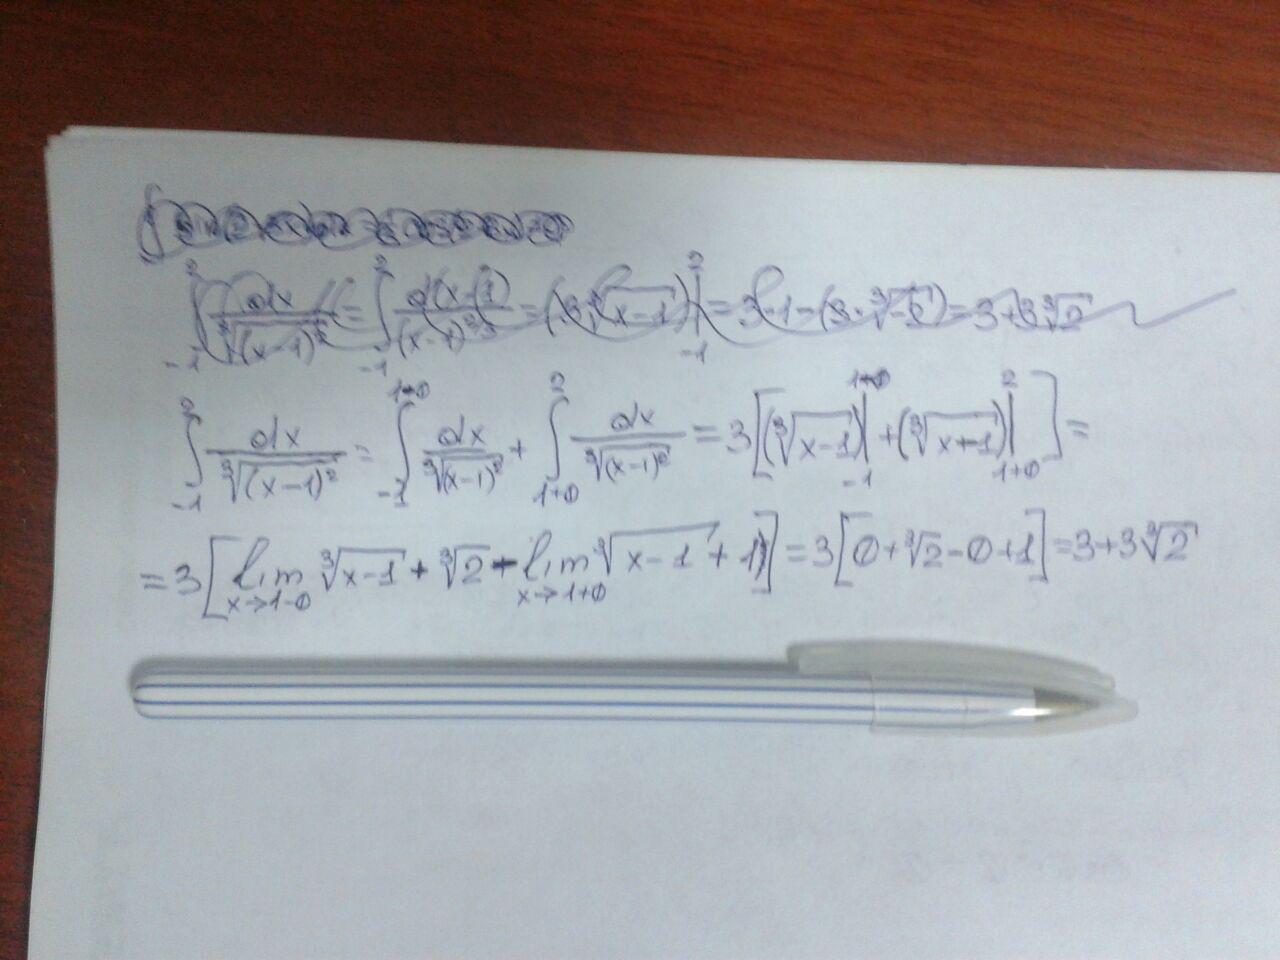 ∫₋₁² dx/∛(x-1)² = ∫₋₁² d(x-1)/(x-1)^(2/3) = (3∛(x-1))|₋₁² = 3·1-(3·∛-2) = 3+3∛2
∫₋₁² dx/∛(x-1)² = ∫₋₁ dx/∛(x-1)² + ∫₁₊₀² dx/∛(x-1)² = 3[(∛(x-1))|₋₁ + (∛(x-1))|₁₊₀²] =
= 3[lim x→1-0 ∛(x-1) + ∛2 - lim x→1+0 ∛(x-1) + 1] = 3[0+∛2-0+1] = 3+3∛2